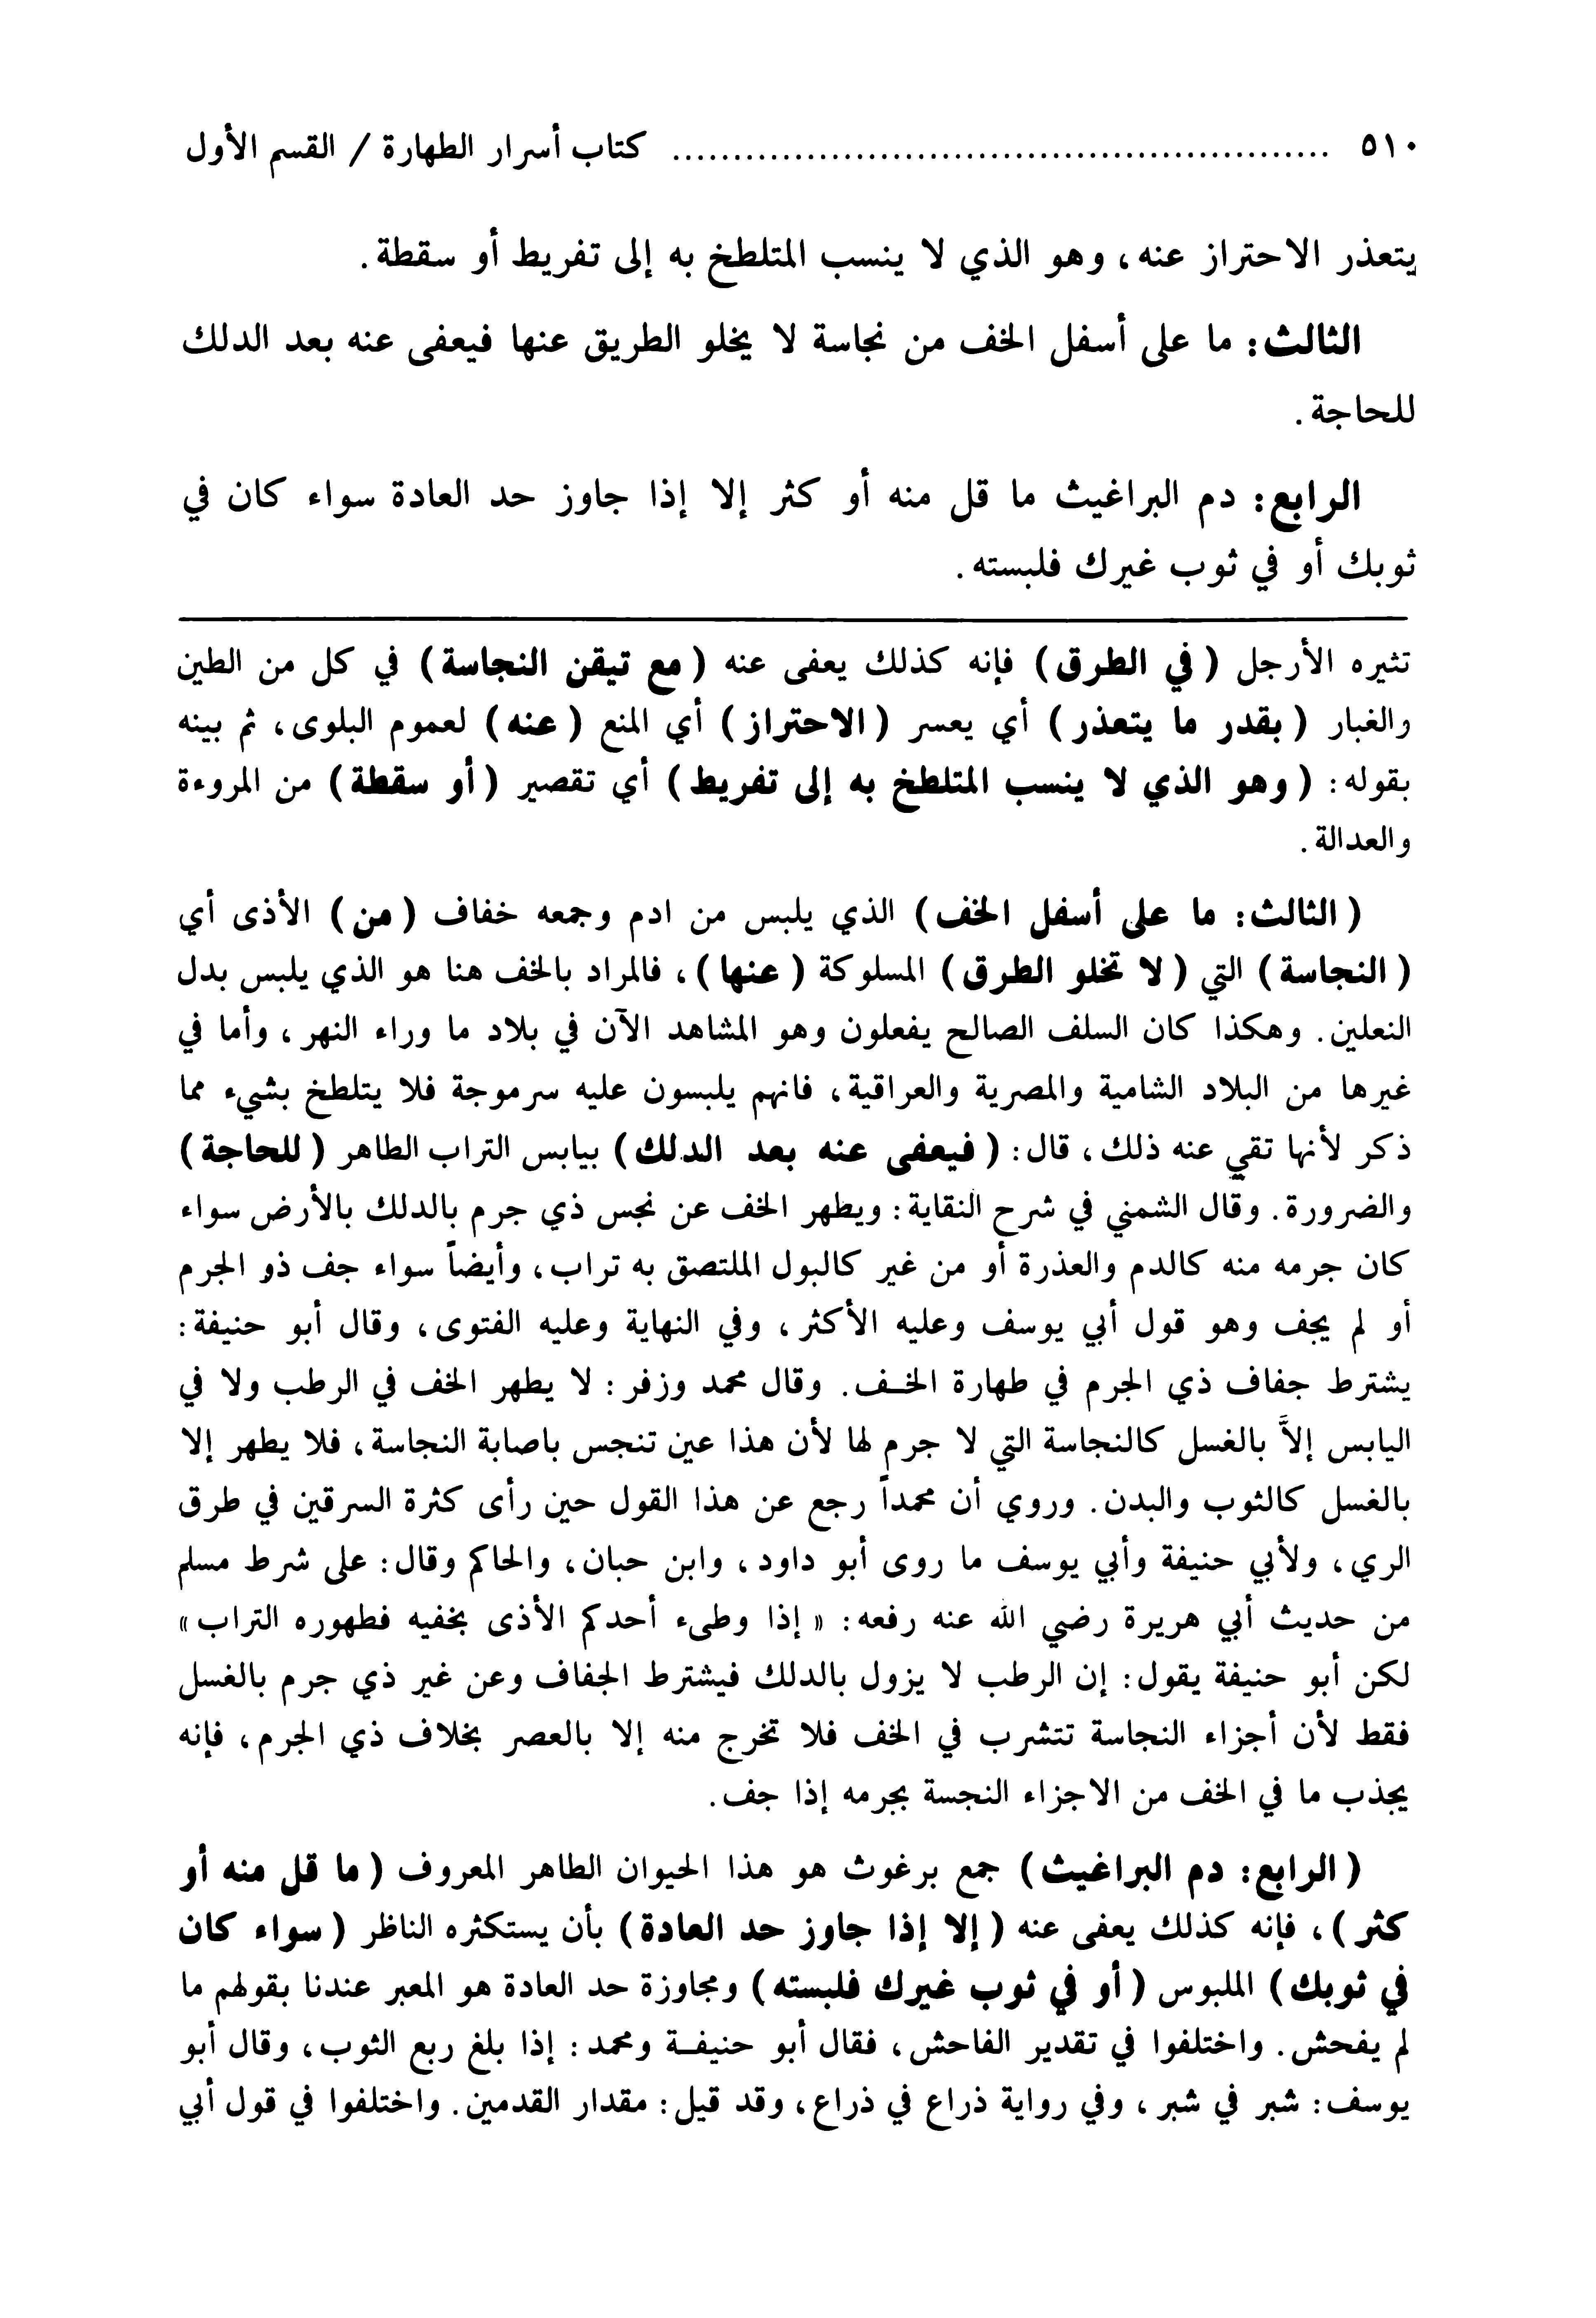 ٥١٠ ...................................................... كتاب أسرار الطهارة / القسم الأول
يتعذر الاحتراز عنه، وهو الذي لا ينسب المتلطخ به إلى تفريط أو سقطة.
الثالث: ما على أسفل الخف من نجاسة لا يخلو الطريق عنها فيعفى عنه بعد الدلك
للحاجة.
الرابع: دم البراغيث ما قل منه أو كثر إلا إذا جاوز حد العادة سواء كان في
ثوبك أو في ثوب غيرك فلبسته.
تثيره الأرجل (في الطرق) فإنه كذلك يعفى عنه (مع تيقن النجاسة) في كل من الطين
والغبار (بقدر ما يتعذر) أي يعسر (الاحتراز) أي المنع (عنه) لعموم البلوى، ثم بينه
بقوله: (وهو الذي لا ينسب المتلطخ به إلى تفريط) أي تقصير (أو سقطة) من المروءة
والعدالة.
(الثالث: ما على أسفل الخف) الذي يلبس من ادم وجمعه خفاف (من) الأذى أي
(النجاسة) التي (لا تخلو الطرق) المسلوكة (عنها)، فالمراد بالخف هنا هو الذي يلبس بدل
النعلين. وهكذا كان السلف الصالح يفعلون وهو المشاهد الآن في بلاد ما وراء النهر، وأما في
غيرها من البلاد الشامية والمصرية والعراقية، فانهم يلبسون عليه سرموجة فلا يتلطخ بشيء مما
ذكر لأنها تقي عنه ذلك، قال: (فيعفى عنه بعد الدلك) بيابس التراب الطاهر (للحاجة)
والضرورة. وقال الشمني في شرح النقاية: ويطهر الخف عن نجس ذي جرم بالدلك بالأرض سواء
كان جرمه منه كالدم والعذرة أو من غير كالبول الملتصق به تراب، وأيضاً سواء جف ذو الجرم
أو لم يجف وهو قول أبي يوسف وعليه الأكثر، وفي النهاية وعليه الفتوى، وقال أبو حنيفة:
يشترط جفاف ذي الجرم في طهارة الخـف. وقال محمد وزفر: لا يطهر الخف في الرطب ولا في
اليابس إلاَّ بالغسل كالنجاسة التي لا جرم لها لأن هذا عين تنجس باصابة النجاسة، فلا يطهر إلا
بالغسل كالثوب والبدن. وروي أن محمداً رجع عن هذا القول حين رأى كثرة السرقين في طرق
الري، ولأبي حنيفة وأبي يوسف ما روى أبو داود، وابن حبان، والحاكم وقال: على شرط مسلم
من حديث أبي هريرة رضي الله عنه رفعه: «إذا وطىء أحدكم الأذى بخفيه فطهوره التراب»
لكن أبو حنيفة يقول: إن الرطب لا يزول بالدلك فيشترط الجفاف وعن غير ذي جرم بالغسل
فقط لأن أجزاء النجاسة تتشرب في الخف فلا تخرج منه إلا بالعصر بخلاف ذي الجرم، فإنه
يجذب ما في الخف من الاجزاء النجسة بجرمه إذا جف.
(الرابع: دم البراغيث) جمع برغوث هو هذا الحيوان الطاهر المعروف (ما قل منه أو
كثر)، فإنه كذلك يعفى عنه (إلا إذا جاوز حد العادة) بأن يستكثره الناظر (سواء كان
في ثوبك) الملبوس (أو في ثوب غيرك فلبسته) ومجاوزة حد العادة هو المعبر عندنا بقولهم ما
لم يفحش. واختلفوا في تقدير الفاحش، فقال أبو حنيفـة ومحمد: إذا بلغ ربع الثوب، وقال أبو
يوسف: شبر في شبر، وفي رواية ذراع في ذراع، وقد قيل: مقدار القدمين. واختلفوا في قول أبي